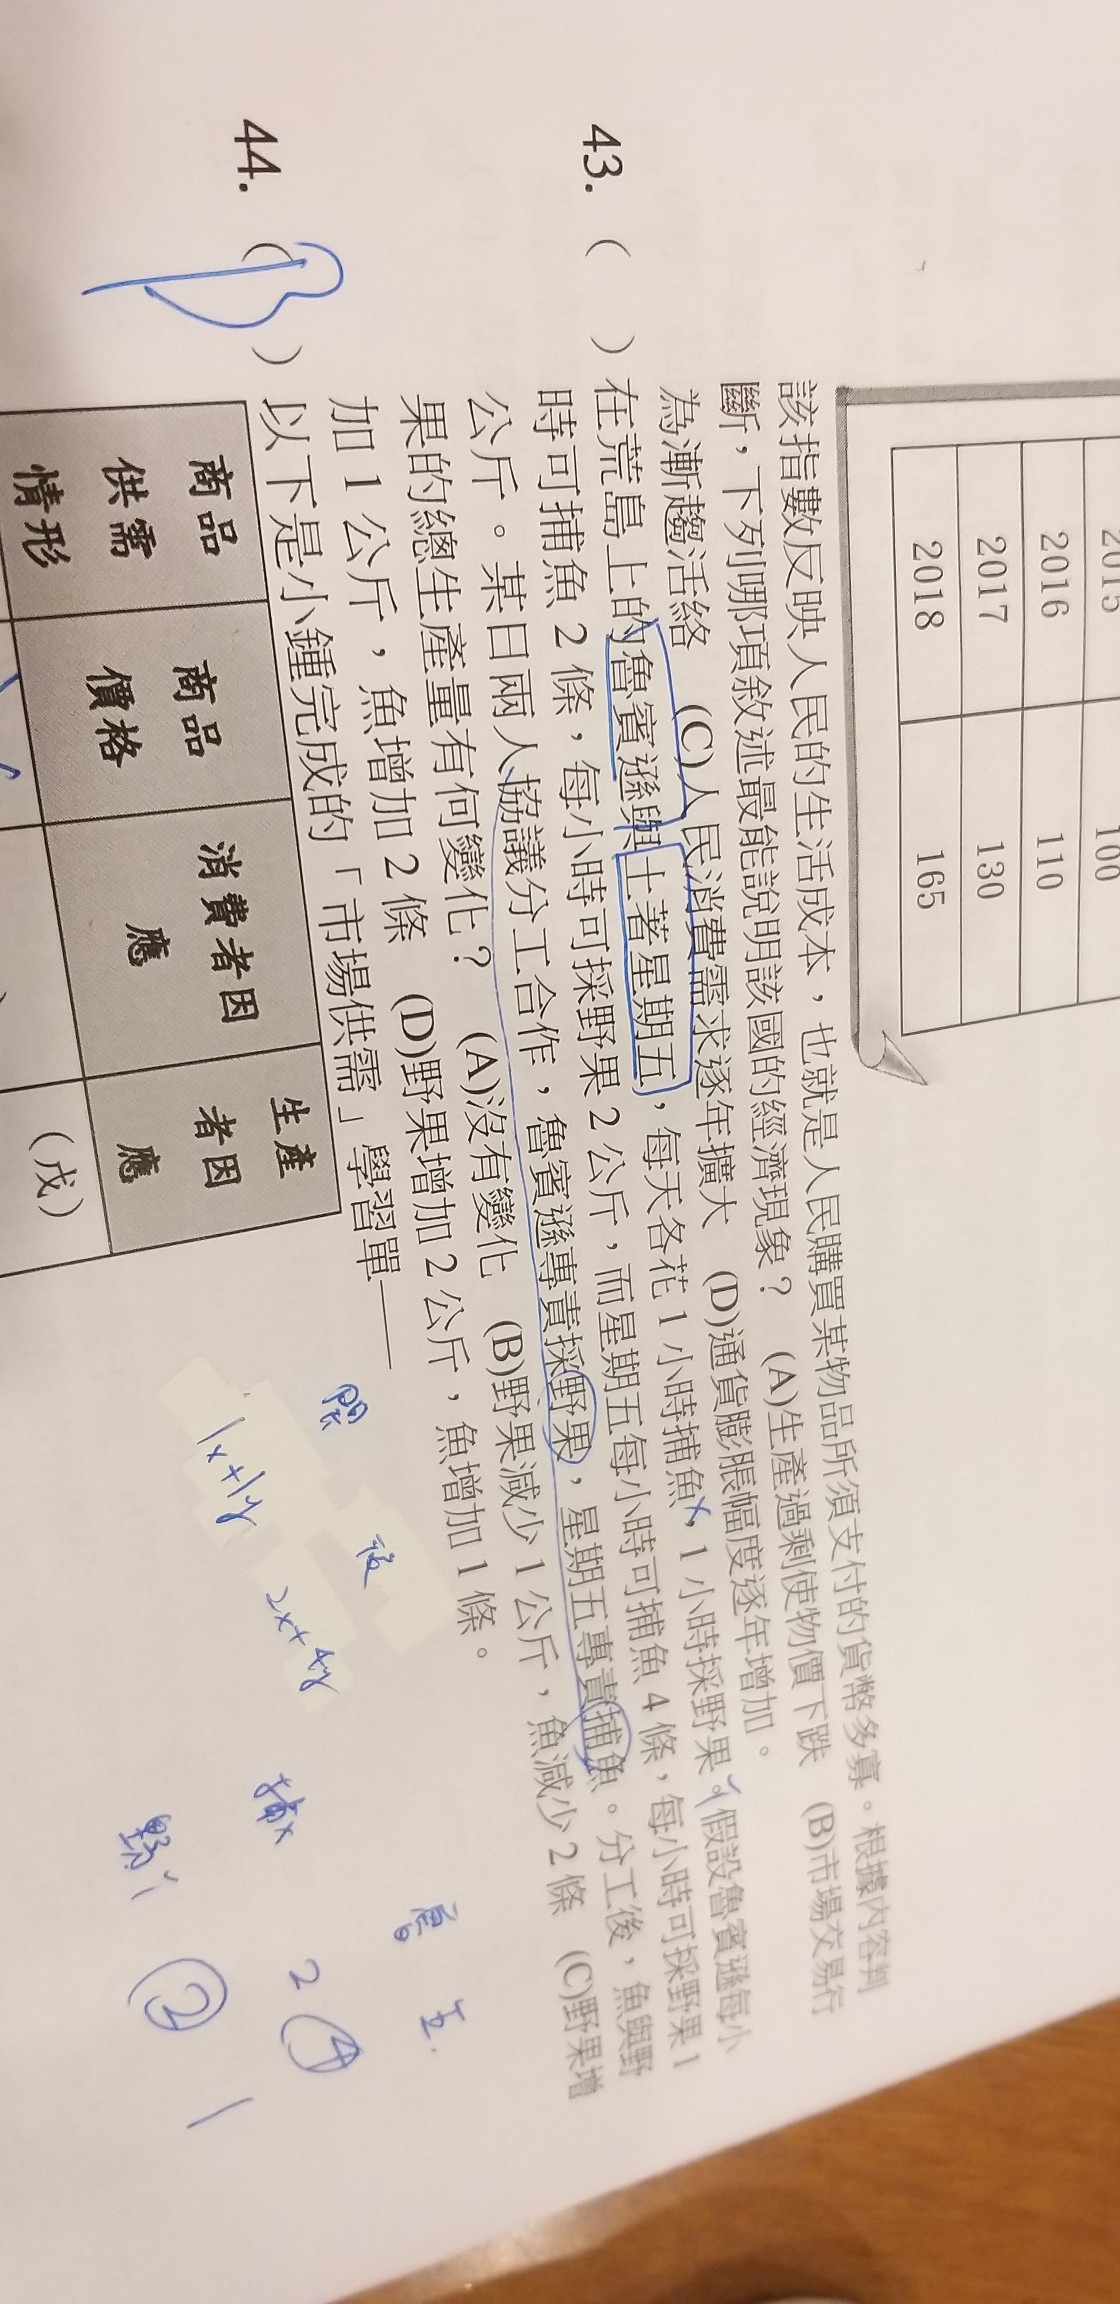 2015 100
2016 110
2017 130
2018 165
該指數反映人民的生活成本，也就是人民購買某物品所須支付的貨幣多寡。根據內容判
斷，下列哪項敘述最能說明該國的經濟現象？ (A)生產過剩使物價下跌 (B)市場交易行
為漸趨活絡 (C)人民消費需求逐年擴大 (D)通貨膨脹幅度逐年增加。
43. ( ) 在荒島上的魯賓遜與土著星期五，每天各花1小時捕魚x，1小時採野果。y假設魯賓遜每小
時可捕魚2條，每小時可採野果2公斤，而星期五每小時可捕魚4條，每小時可採野果1
公斤。某日兩人協議分工合作，魯賓遜專責採野果，星期五專責捕魚。分工後，魚與野
果的總生產量有何變化？ (A)沒有變化 (B)野果減少1公斤，魚減少2條 (C)野果增
加1公斤，魚增加2條 (D)野果增加2公斤，魚增加1條。
44. ( B ) 以下是小鍾完成的「市場供需」學習單——
商品供需情形 商品價格 消費者因應 生產者因應
(戊)
後
1x+1y 2x+4y
魯 五
捕x 2 4
野y 2 1